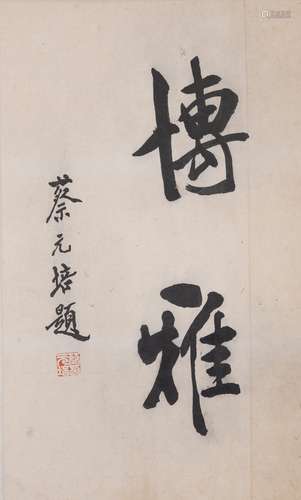 博雅
蔡元培題